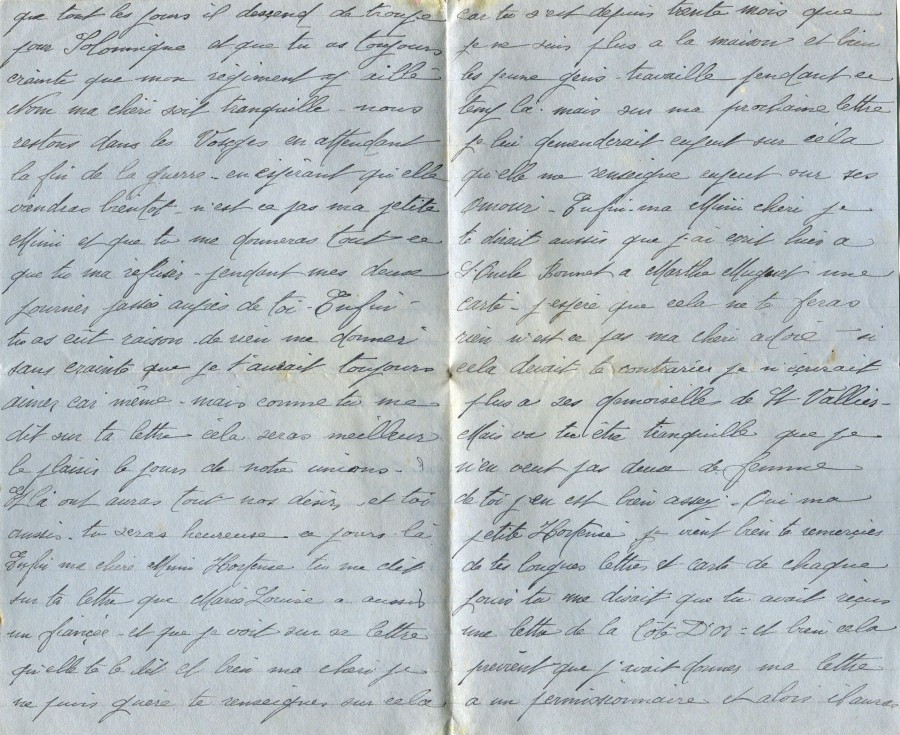 que tout les jours il dessend de troupe
pour Homnigne et que tu as toujours
crainte que mon régiment y aille
Nom ma chéri soit tranquille - nous
restons dans les Vosges en attendant
la fin de la guerre - en espérant qu'elle
viendras bientot - n'est ce pas ma petite
Mimi et que tu me donneras tout ce
que tu ma refuser - pendant mes deux
journée passé aupres de toi - Enfin
tu as eut raison de rien me donner
sans crainte que je t'aurait toujours
aimer car même - mais comme tu me
dit sur ta lettre cela seras meilleur
le plaisir le jours de notre unions -
Et la ont auras tout nos désirs et toi
aussi - tu seras heureuse ce jours - là
Enfin ma chère Mimi Hortense tu me dit
sur ta lettre que Marie Louise a aussi
un fiancée - et que je voit sur sa lettre
qu'elle te le dit et bien ma cheri je
ne puis guère te renseigner sur cela
car tu s'est depuis trente mois que
je ne suis plus a la maison et bien
les jeune gens - travaille pendant ce
temp la - mais sur ma prochaine lettre
je lui demenderait sur cela
qu'elle me renseigne sur ses
Amour - Enfin ma Mimi chéri je
te dirait aussis que j'ai ecrit hier a
St Bonnet a Marthe Muguet une
carte - j'espere que cela ne te feras
rien n'est ce pas ma chéri adoré - si
cela devait le contrarier je n'ecrirait
plus a ses demoiselles de St Vallier -
Mais va tu être tranquille que je
n'en veut pas deux de femme
de toi j'en est bien assez - Oui ma
petite Hortense je vient bien te remercier
de tes longues lettres et carte de chaque
jours tu me disait que tu avait reçus
une lettre de la Côte D'Or = et bien cela
prévient que j'avait donner ma lettre
a un permissionnaire et alors il auras